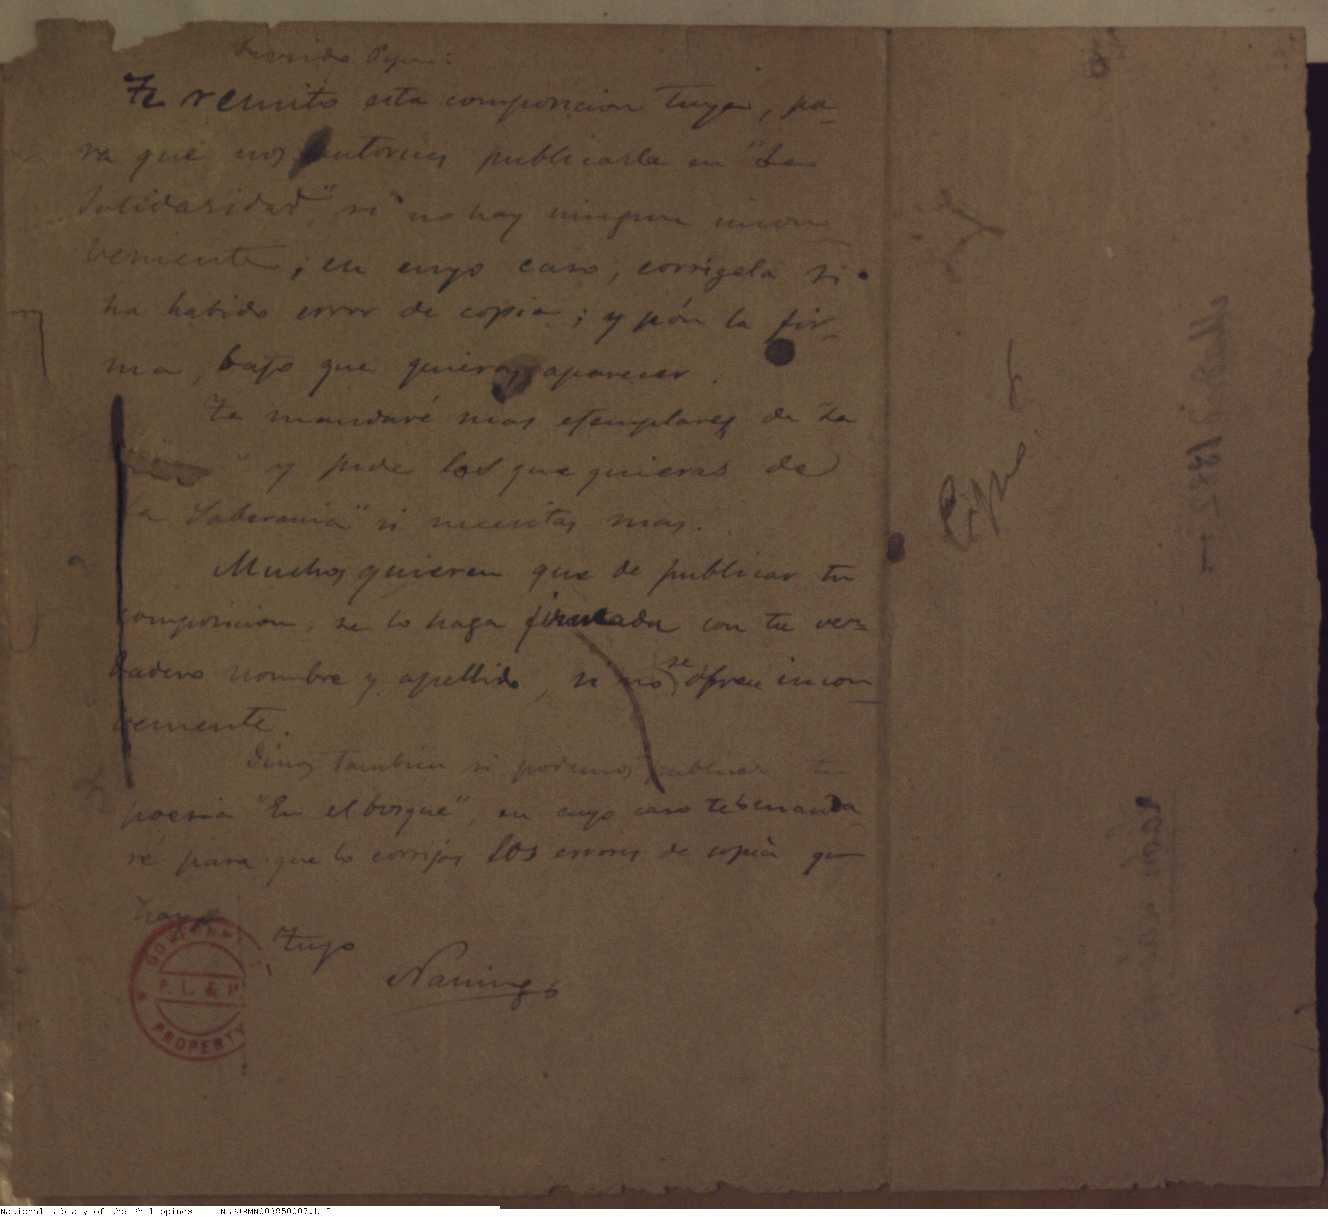 Querido Pepe:
Te remito esta composicion tuya, pa-
ra que nos autorices publicarla en "La
Solidaridad", si no hay ningun incon-
veniente; en cuyo caso, corrígela si
ha habido error de copia; y pón la fir-
ma, bajo que quieras aparecer.
Te mandaré mas ejemplares de La
" y pide los que quieras de
La Soberania" si necesitas mas.
Muchos quieren que de publicar tu
composicion, se lo haga firmada con tu ver-
dadero nombre y apellido, si no se ofrece incon-
veniente.
Dinos tambien si podemos publicar tu
poesia "En el bosque", en cuyo caso te la manda
ré para que lo corrijas los errores de copia que
haya
Tuyo
Naning
GOVERNMENT
P. L. & M.
PROPERTY
Pepe
National Library of the Philippines